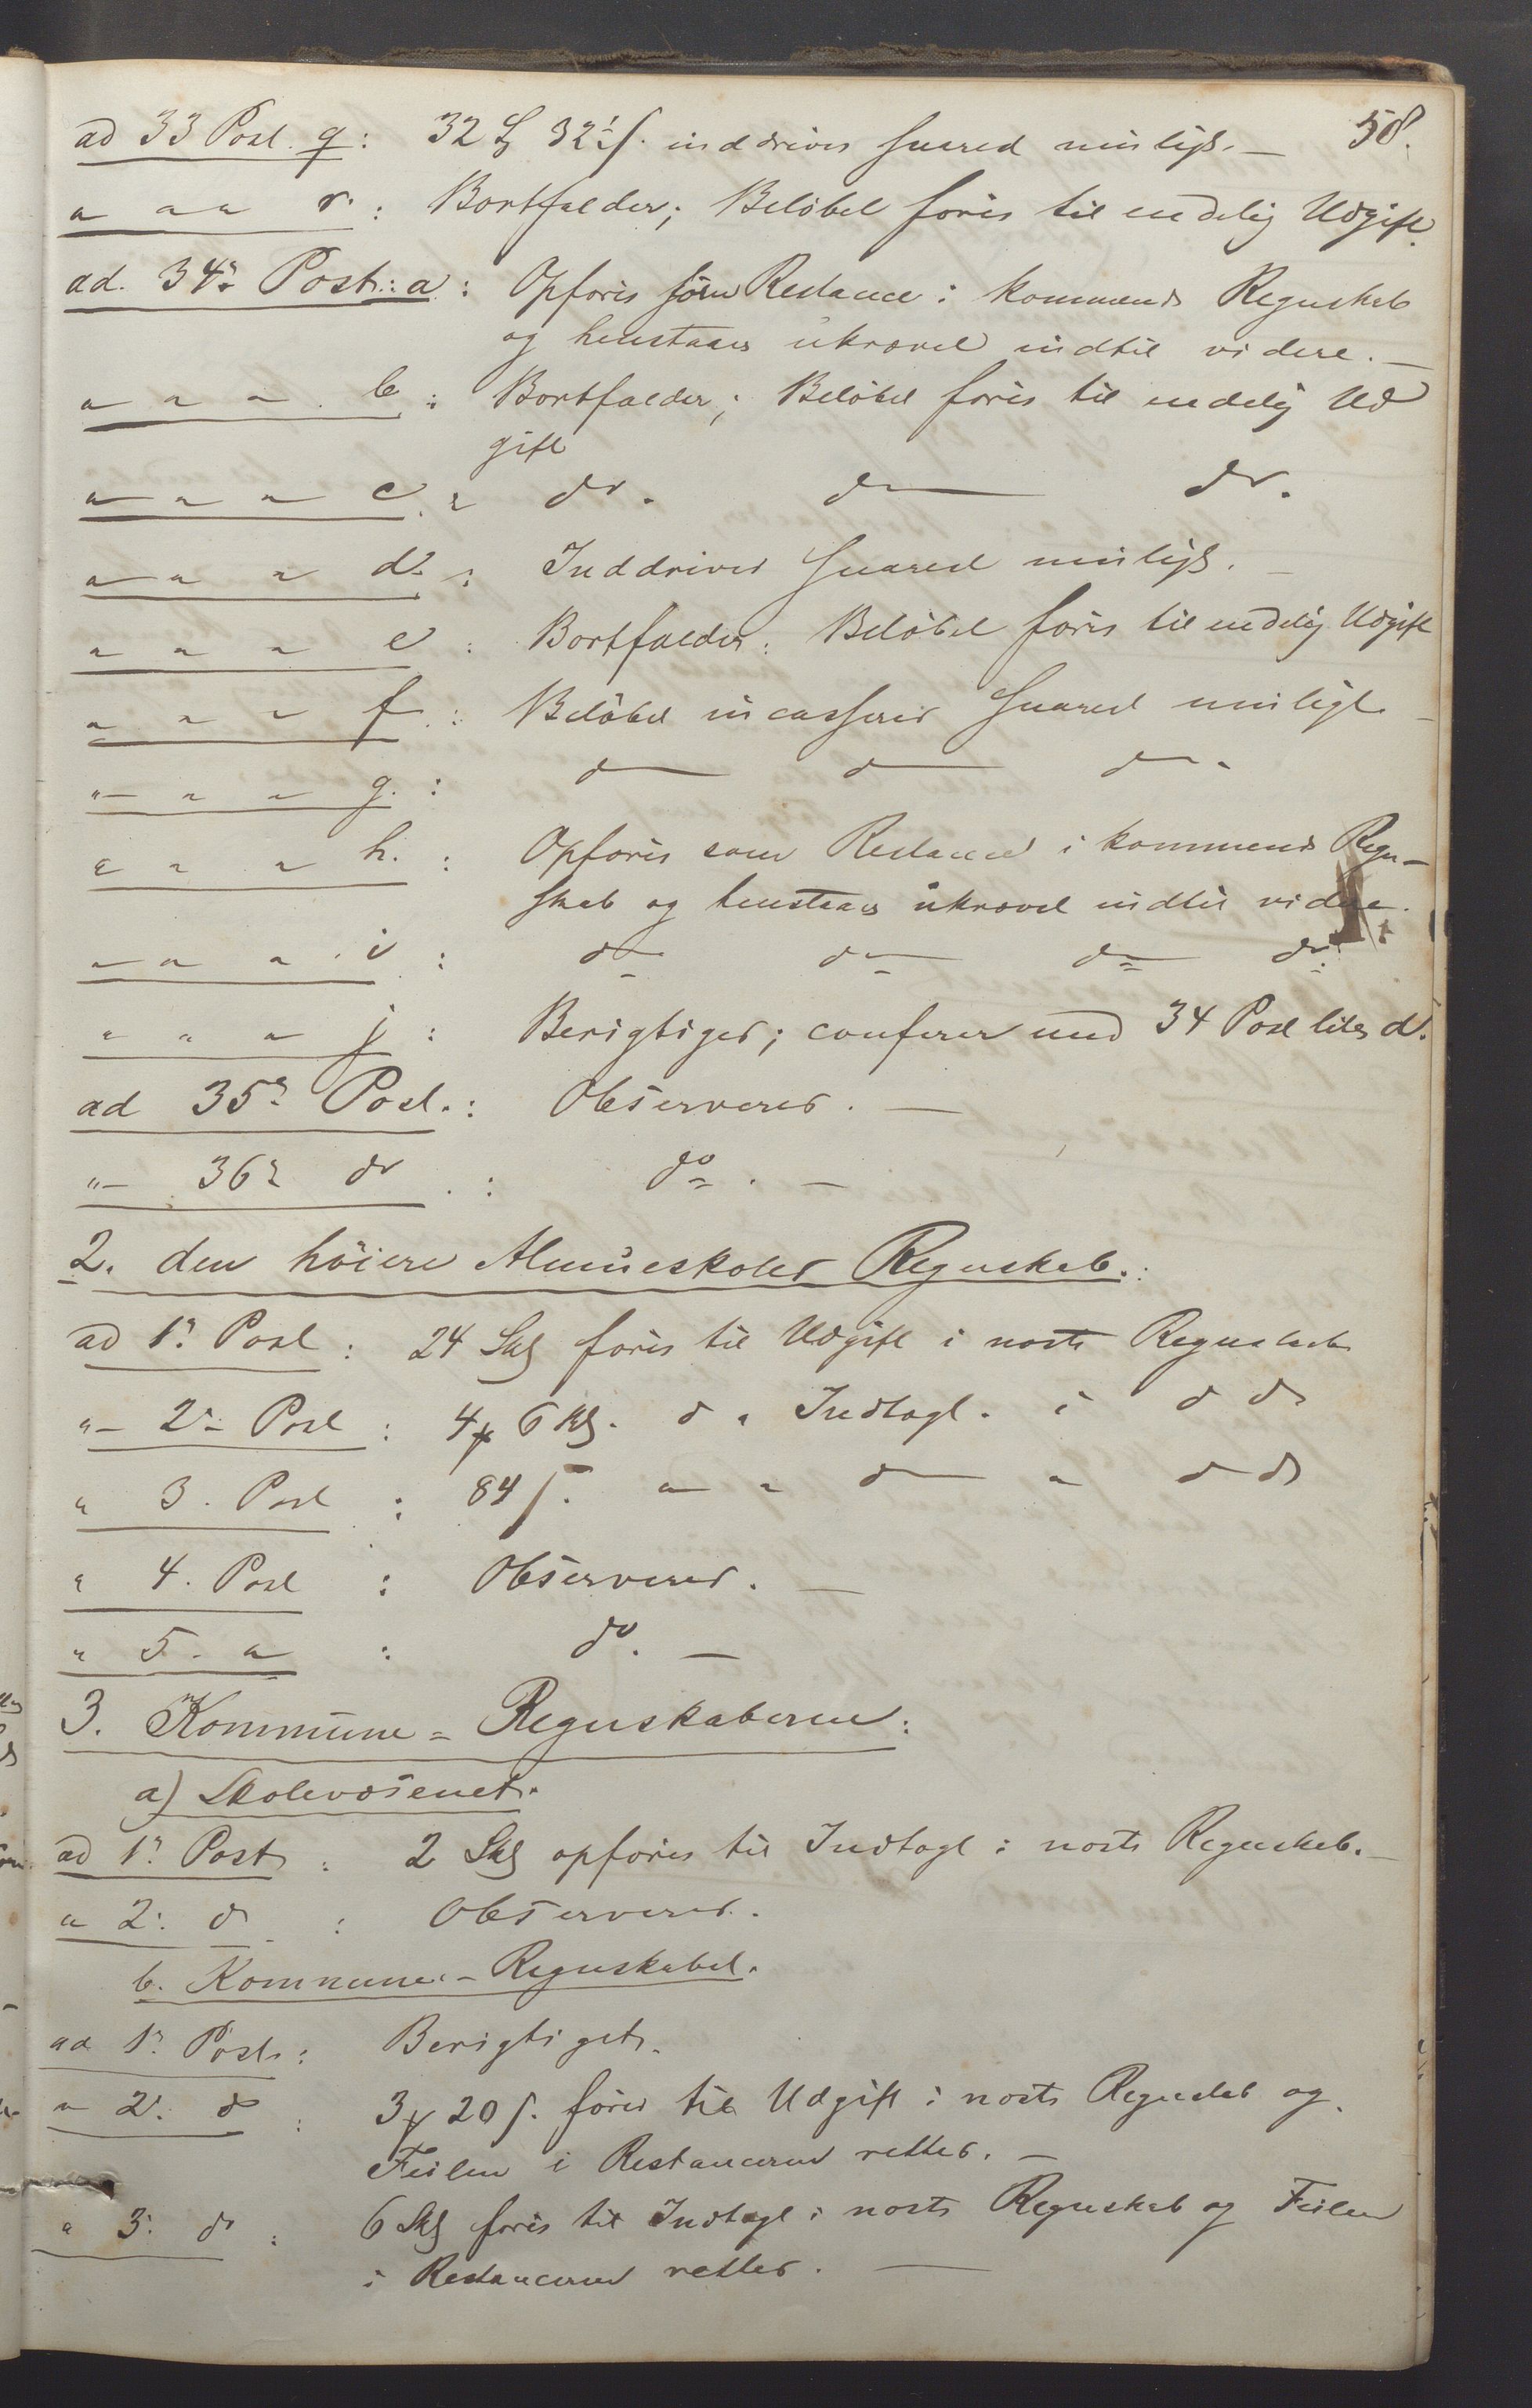 58.
ad 33 Post. q: 32 ß 32 ſ. inddrives snarest muligt. —
" " " r: Bortfalder; Beløbet føres til endelig Udgift.
ad. 34de Post: a: Opføres som Restance i kommende Regnskab
og henstaaer ukrævet indtil videre. —
" " " b: Bortfalder; Beløbet føres til endelig Ud
gift
" " " c: do. do do.
" " " d: Inddrives snarest muligt. —
" " " e: Bortfalder: Beløbet føres til endelig Udgift
" " " f: Beløbet incasseres snarest muligt. —
" " " g.: do do do.
" " " h.: Opføres som Restance i kommende Regn-
skab og henstaaes ukrævet indtil videre.
" " " i: do do do do.
" " " j: Berigtiges; conferer med 34 Post litr d.
ad 35te Post.: Observeres. —
" 36te do: do. —
2. den høiere Almueskoles Regnskab.:
ad 1ste Post: 24 Skg føres til Udgift i næste Regnskab
" 2de Post: 4 6 Skg. do " Indtægt. i do do
" 3. Post: 84 ſ. " " do " do do
" 4. Post: Observeres. —
" 5. ": do. —
3. Kommune-Regnskaberne:
a) Skolevæsenet.
ad 1ste Post: 2 Skg opføres til Indtægt i næste Regnskab. —
" 2. do: Observeres.
b. Kommune-Regnskabet.
ad 1ste Post: Berigtiget.
" 2. do: 3 20 ſ. føres til Udgift i næste Regnskab og
Feilen i Restancerne rettes. —
" 3. do: 6 Skg føres til Indtægt i næste Regnskab og Feilen
i Restancerne rettes. —